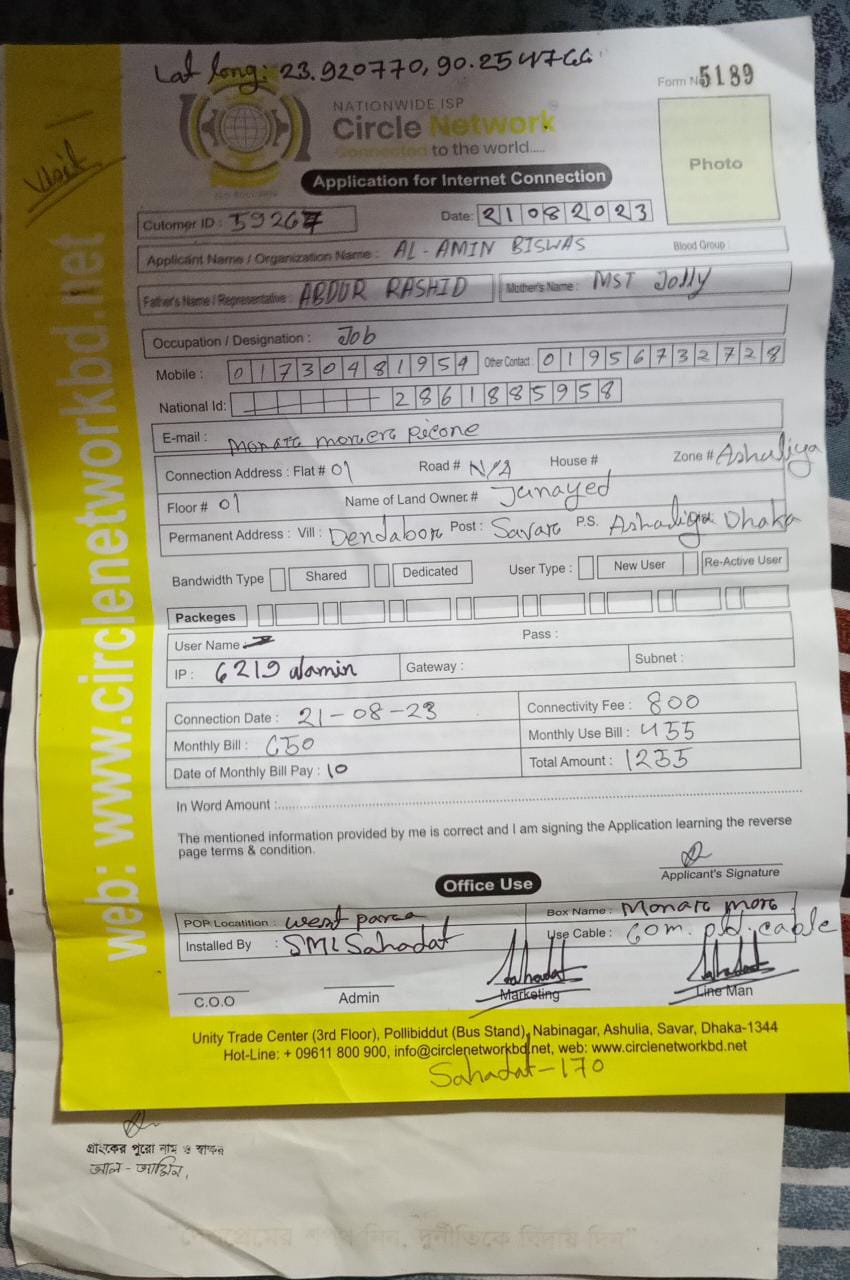 Lat long: 23.920770, 90.254766
Form No 5189
NATIONWIDE ISP
Circle Network
Connected to the world.....
Photo
Visit
Application for Internet Connection
Cutomer ID : 59267 Date: 21082023
Applicant Name / Organization Name : AL-AMIN BISWAS Blood Group :
Father's Name / Representative : ABDUR RASHID Mother's Name : MST Jolly
Occupation / Designation : Job
Mobile : 01730481954 Other Contact : 01956732728
National Id: 2861885958
E-mail : Monar more
Connection Address : Flat # 01 Road # N/A House # Zone # Ashuliya
Floor # 01 Name of Land Owner # Junayed
Permanent Address : Vill : Dendabor Post : Savar P.S. Dhaka
Bandwidth Type Shared Dedicated User Type : New User Re-Active User
Packeges
User Name : Pass :
IP : 6219 alamin Gateway : Subnet :
Connection Date : 21-08-23 Connectivity Fee : 800
Monthly Bill : 650 Monthly Use Bill : 455
Date of Monthly Bill Pay : 10 Total Amount : 1255
In Word Amount :
The mentioned information provided by me is correct and I am signing the Application learning the reverse
page terms & condition.
Applicant's Signature
Office Use
POP Locatition : west parra Box Name : Monar more
Installed By : SML Sahadat Use Cable : 60m. cable
Sahadat Sahadat
C.O.O Admin Marketing Line Man
Unity Trade Center (3rd Floor), Pollibiddut (Bus Stand), Nabinagar, Ashulia, Savar, Dhaka-1344
Hot-Line: + 09611 800 900, info@circlenetworkbd.net, web: www.circlenetworkbd.net
Sahadat-170
web: www.circlenetworkbd.net
গ্রাহকের পুরো নাম ও স্বাক্ষর
আল-আমিন,